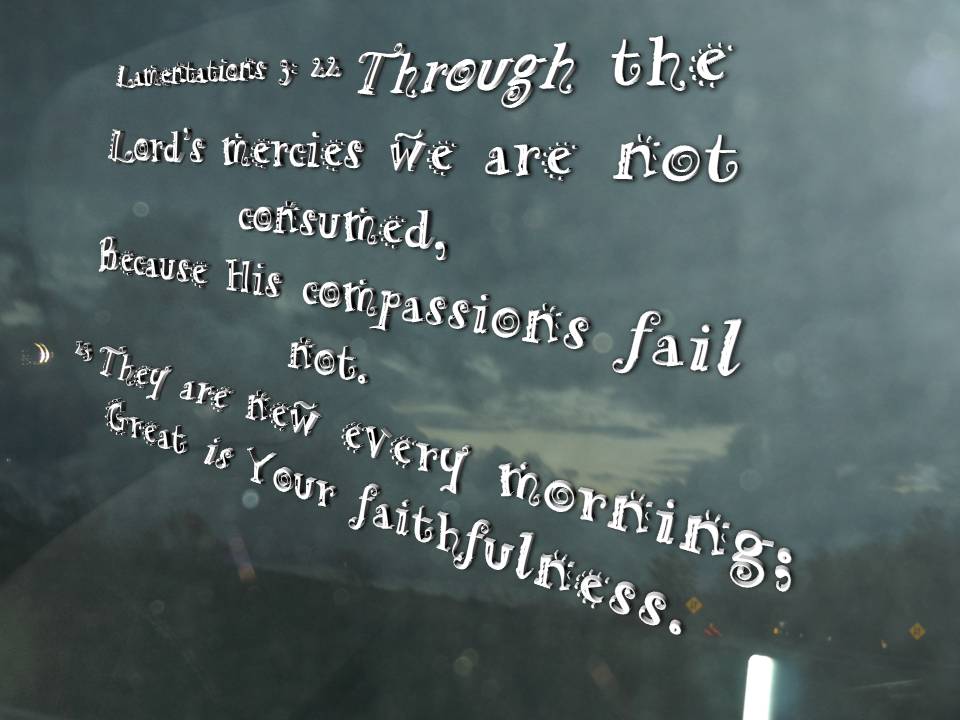 Lamentations 3: 22 Through the
Lord's mercies we are not
consumed,
Because His compassions fail
not.
23 They are new every morning;
Great is Your faithfulness.